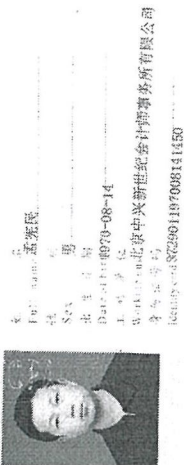 姓 名
Full name 孟宪民
性 别
Sex 男
出 生 日 期
Date of birth 1970-08-14
工 作 单 位
Working unit 北京中兴新世纪会计师事务所有限公司
身 份 证 号 码
Identity card 372901197008141450